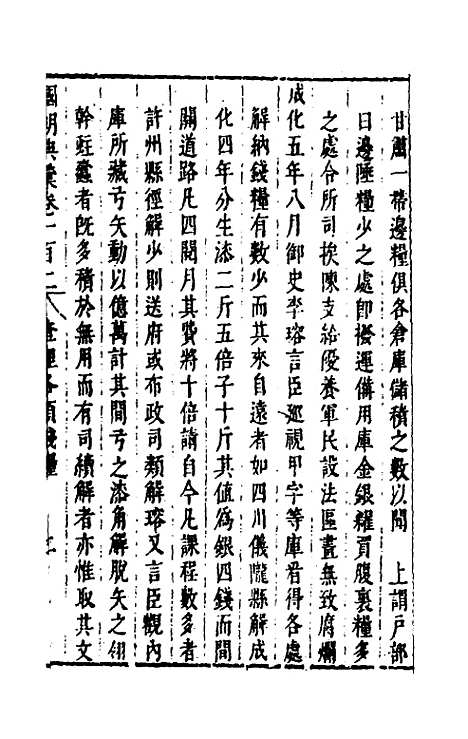 甘肅一帶邊糧俱各倉庫儲積之數以聞　上謂戶部
曰邊陲糧少之處卽撥運備用庫金銀糴買腹裏糧多
之處令所司挨陳支給優養軍民設法區畫無致腐爛
成化五年八月御史李瑢言臣巡視甲字等庫看得各處
解納錢糧有數少而其來自遠者如四川儀隴縣解成
化四年分生漆二斤五倍子十斤其值爲銀四錢而間
關道路凡四閱月其費將十倍請自今凡課程數多者
許州縣徑解少則送府或布政司類解瑢又言臣觀內
庫所藏弓矢動以億萬計其間弓之漆角解脫矢之翎
幹蛀蠹者旣多積於無用而有司續解者亦惟取其文
國朝典彙卷一百二　查理各項錢糧